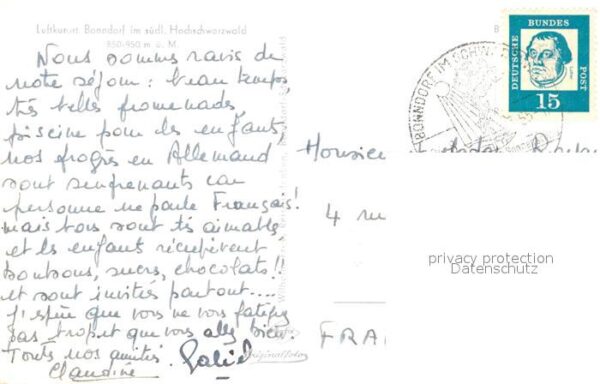 Luftkurort Bonndorf im südl. Hochschwarzwald
850-950 m ü. M.
Nous sommes ravis de
notre séjour : beau temps
très belles promenades,
piscine pour les enfants,
nos progrès en Allemand
sont surprenants car
personne ne parle Français!
mais tous sont très aimables
et les enfants récupèrent
bonbons, sucres, chocolats!!
et sont invités partout....
J'espère que vous ne vous fatiguez
pas trop et que vous allez bien.
Toutes nos amitiés.
Claudine
Monsieur
4 rue
FRA
DEUTSCHE
BUNDES
POST
15
BONNDORF IM SCHW
privacy protection
Datenschutz
Originalfoto